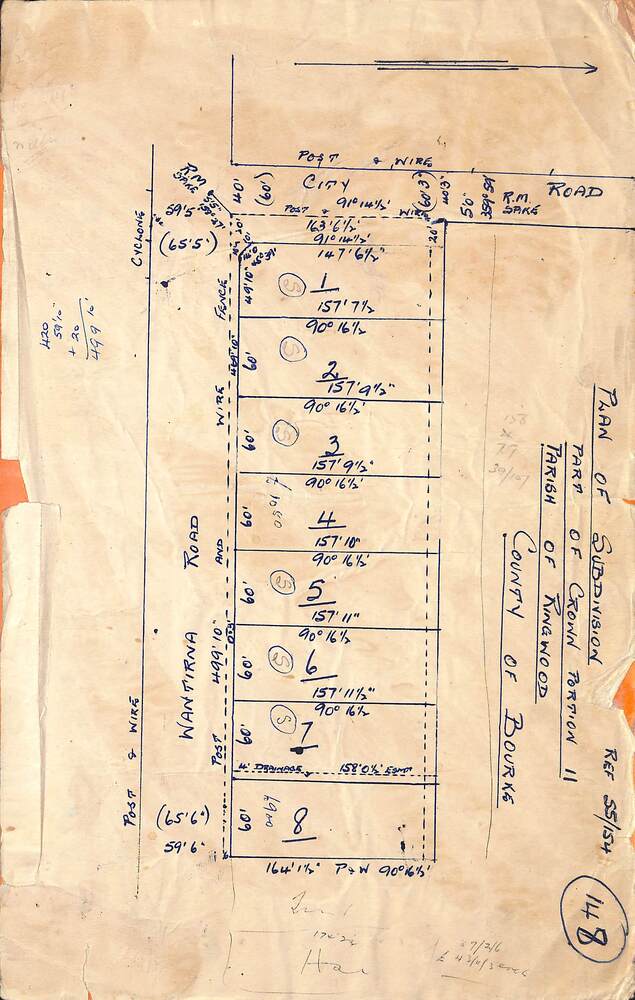 PLAN OF SUBDIVISION
PART OF CROWN PORTION 11
PARISH OF RINGWOOD
COUNTY OF BOURKE
REF 55/154
148
POST & WIRE
CITY
ROAD
R.M
SAKE
40'
(60')
91° 14½'
(60'3")
40'3"
5'0"
359° 59'
R.M.
SAKE
59'5"
(65'5")
POST & WIRE
20'
163'6½"
91° 14½'
147'6½"
20'
CYCLONE
49'10"
FENCE
S
1
157'7½"
90° 16½'
420
59'10"
+ 20
499'10"
60'
S
2
157'9½"
90° 16½'
WIRE
60'
S
3
157'9½"
90° 16½'
60'
4
157'10"
90° 16½'
ROAD
AND
60'
S
5
157'11"
90° 16½'
WANTIRNA
499'10"
60'
S
6
157'11½"
90° 16½'
POST
60'
S
7
4' DRAINAGE
158'0½" ESMT
POST & WIRE
(65'6")
59'6"
60'
8
164'1½" P & W 90° 16½'